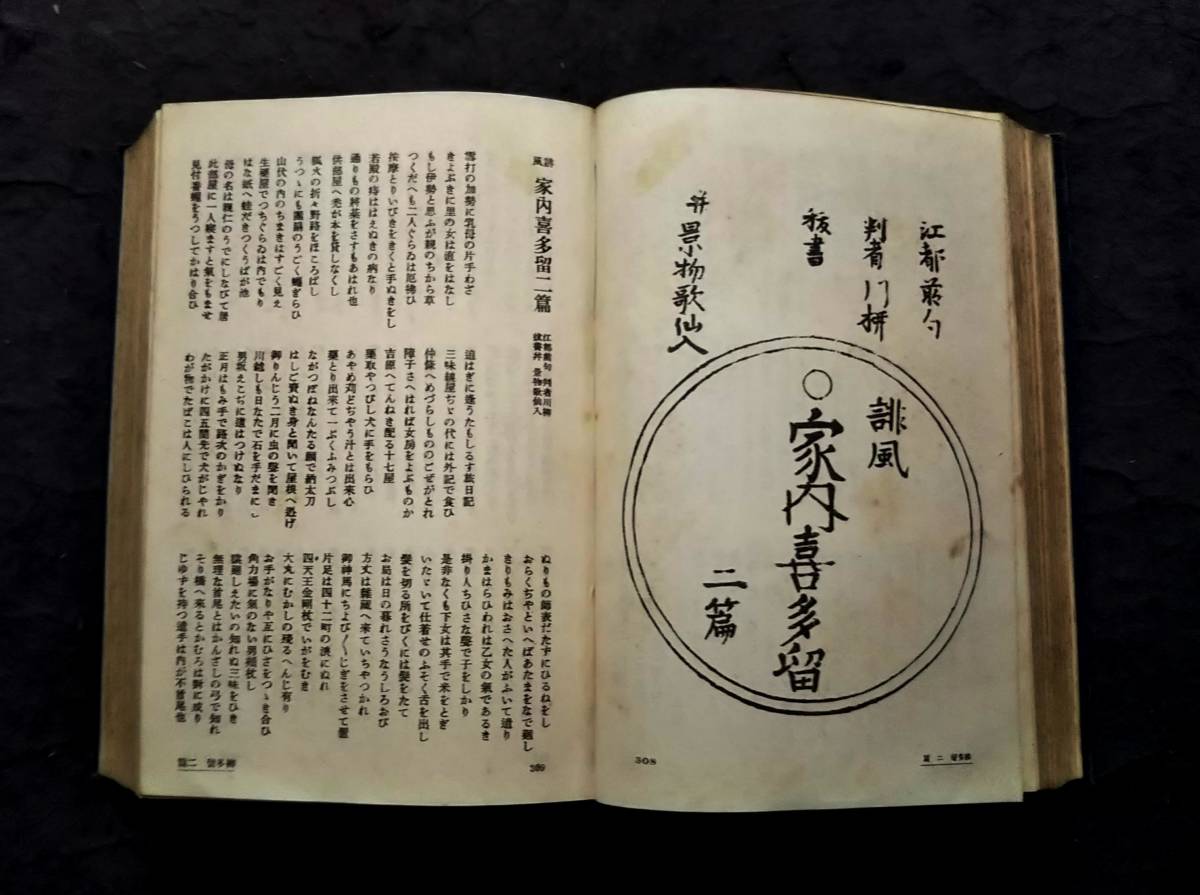 江都前句
判者川柳
抜書
并景物歌仙入
誹風
家内喜多留
二篇
308
柳多留 二篇
誹風 家内喜多留二篇
江都前句 判者川柳
抜書并 景物歌仙入
雪打の加勢に乳母の片手わざ
きよぶきに里の女は直をはなし
もし伊勢と思ふが親のちから草
つくだへも二人ぐらゐは厄拂ひ
按摩とりいびきをきくと手ぬきをし
若殿の疳ははえぬきの病なり
通りもの將棊をさすもあはれ也
供部屋へ禿が本を貸しなくし
狐火の折々野路をほころばし
うつゝにも團扇のうごく蠅ぎらひ
山伏の内のちまきはすごく見え
生藥屋でつちぐらゐは内でもり
はな紙へ蛙だきつくうばが池
母の名は親仁のうでにしなびて居
此部屋に一人寢ますと氣をもませ
見付番蠅をうつしてかはり合ひ
追はぎに逢うたもしるす旅日記
三味線屋ぢゞの代には外記で食ひ
仲條へめづらしもののごぜがとれ
障子さへはれば女房をよぶものか
吉原へてんねき配る十七屋
藥取やつびし犬に手をもらひ
あやめ苅どぢやう汁とは出來心
藥とり出來て一ぷくふみつぶし
ながつぼねなんたる願で納太刀
はしご賣ぬき身と聞いて屋根へ逃げ
御りんじう二月に虫の聲を聞き
川越しも日なたで石を手だまにし
男坂えこぢに道はつけぬなり
正月はもみ手で路次のかぎをかり
たがかけに四五間先で犬がじやれ
わが物でたばこは人にしひられる
ぬりもの師表だたずにひるねをし
おらくぢやといへばあたまをなで廻し
きりもみはおさへた人がふいて遣り
かまはらひわれは乙女の氣であるき
掛り人ちひさな聲で子をしかり
是非なくも下女は其手で米をとぎ
いたゞいて仕着せのふそく舌を出し
髮を切る所をびくには髮をたて
お局は日の暮れさうなうしろおび
方丈は雜藏へ來ていちやつかれ
御神馬にちよび〳〵じぎをさせて置
片足は四十二町の浪にぬれ
四天王金剛杖でいがをむき
大丸にむかしの殘るへんじ有り
お手がなりや互にひざをつゝき合ひ
角力場に氣のない男頬杖し
陰廻しえたいの知れぬ三味をひき
無理な首尾とはかんざしの弓で知れ
そり橋へ來るとかむろは對に成り
じゆずを持つ遣手は内が不首尾也
309
柳多留 二篇